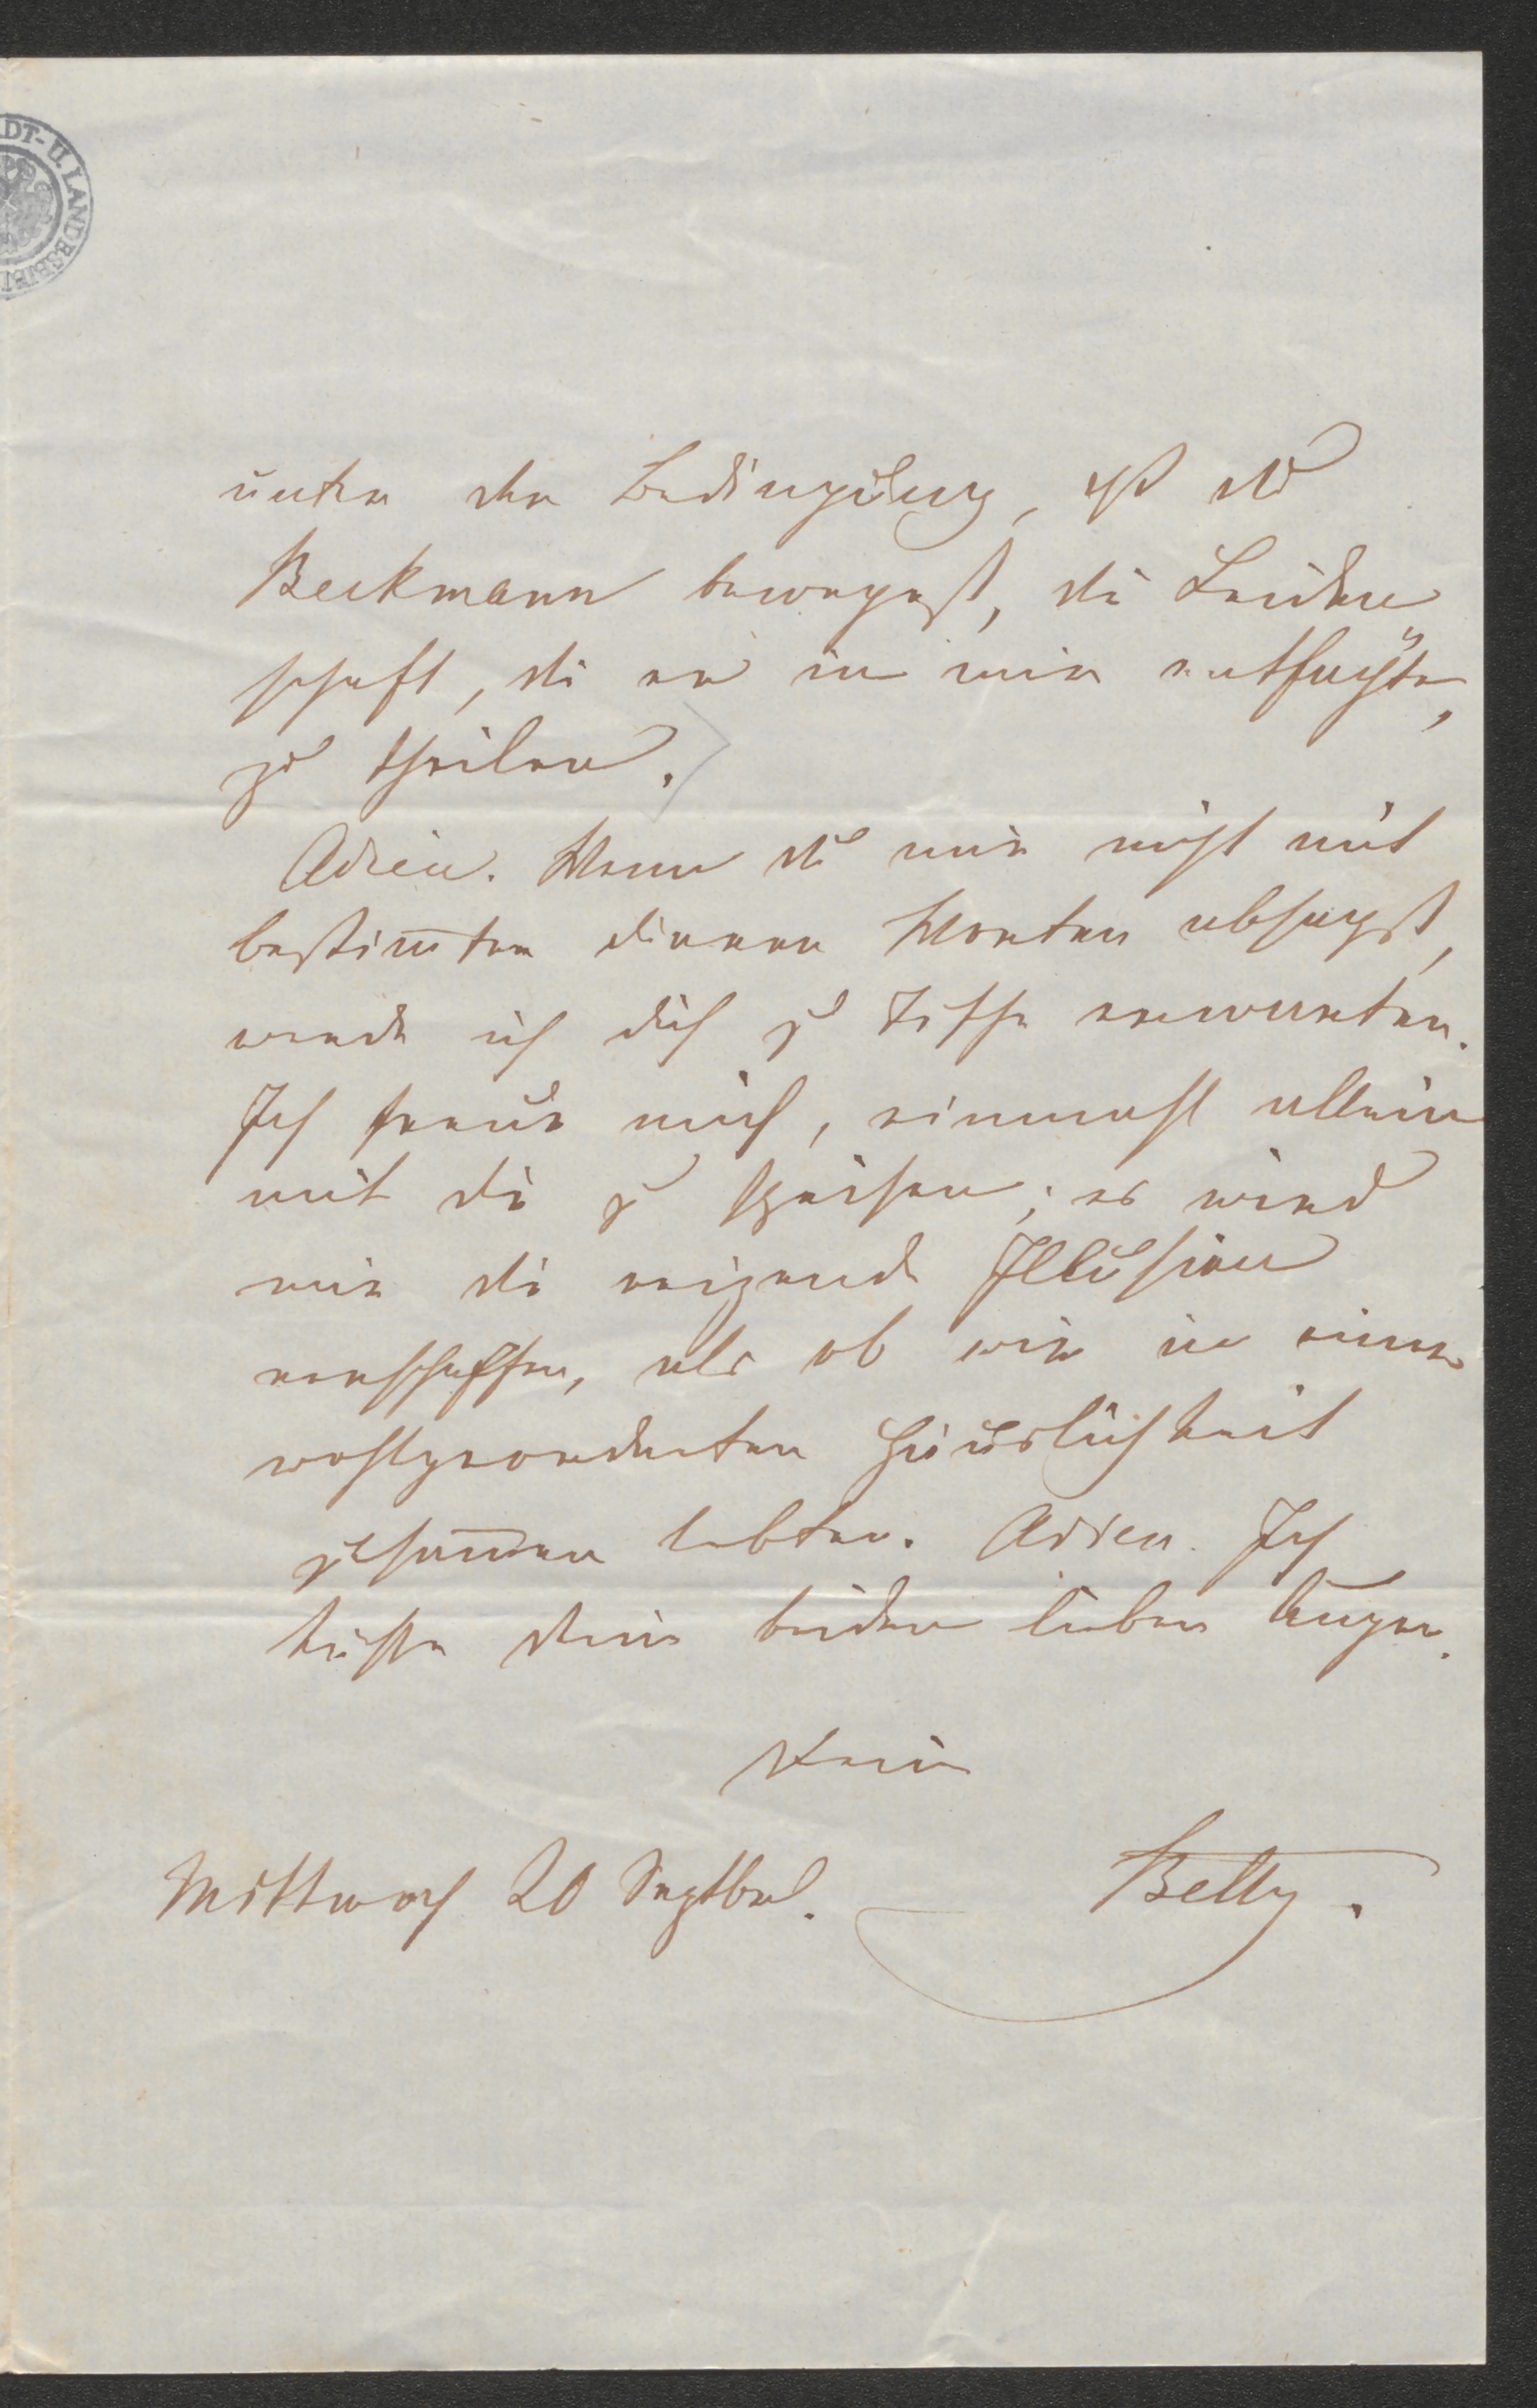 DT- U. LANDESBIBL
unter der Bedingung, daß du
Beckmann bewegest, die Leiden
schaft, die er in mir entfachte,
zu theilen.
Adieu. Wenn du mir nicht mit
bestimten Worten absagst,
werde ich dich zu Tische erwarten.
Ich freue mich, einmahl allein
mit dir zu speisen; es wird
mir die reizende Illusion
verschaffen, als ob wir in einer
wohlgeordneten Häuslichkeit
zusamen lebten. Adieu. Ich
küsse deine beiden lieben Augen.
Deine
Mittwoch 20 Septbr.
Betty.